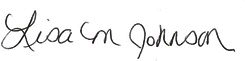 Lisa M Johnson